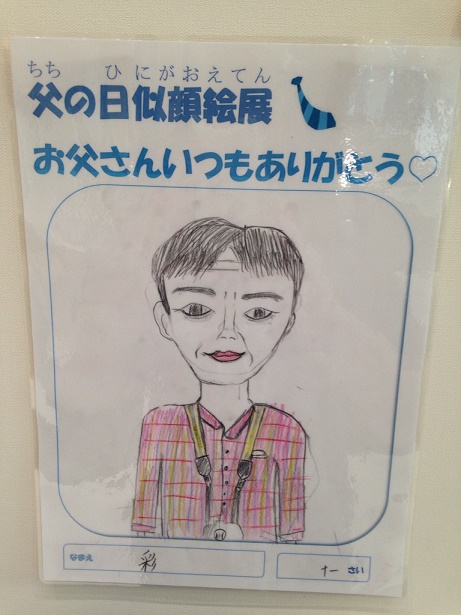 ちち ひ にがおえてん
父の日似顔絵展
お父さんいつもありがとう♡
なまえ 彩
十一 さい